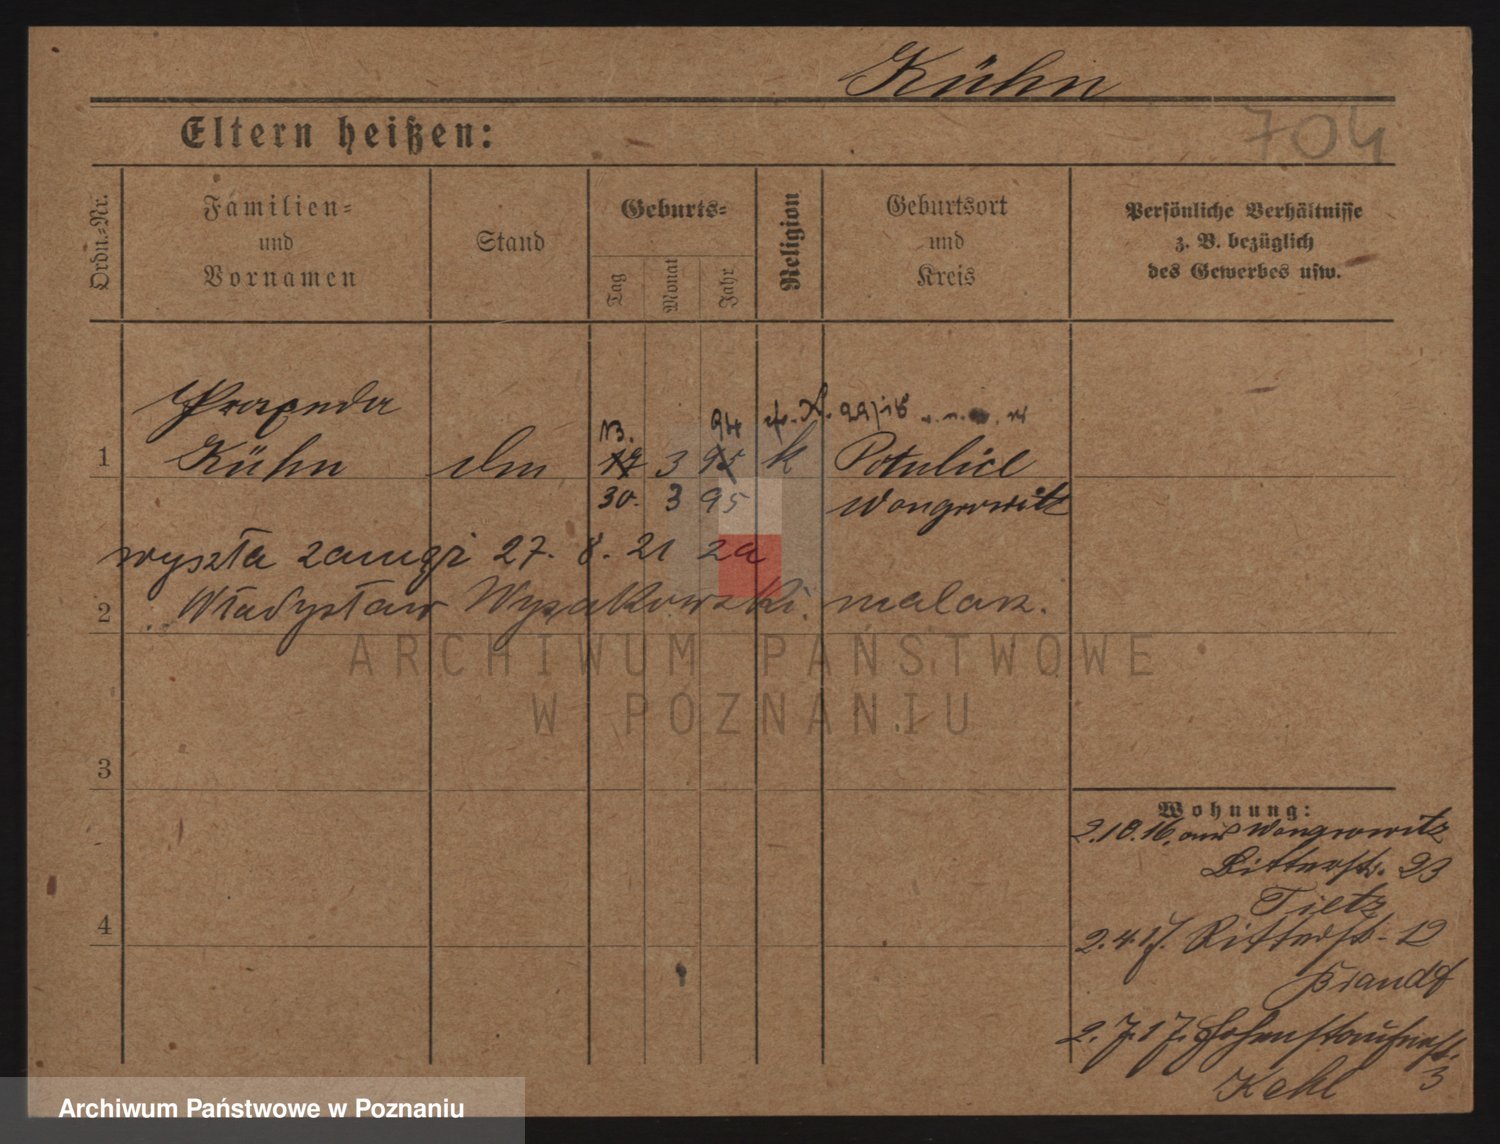 Kühn
704
Eltern heißen:
Ordn.-Nr.
Familien- und Vornamen
Stand
Geburts-
Tag
Monat
Jahr
Religion
Geburtsort und Kreis
Persönliche Verhältnisse z. B. bezüglich des Gewerbes usw.
13. 94
1 Kühn 17 3 95 k Potulice
30. 3 95 Wongrowitz
wyszła zamąż 27. 8. 21 za
2 Władysław Wysakowski. malarz.
ARCHIWUM PAŃSTWOWE
W POZNANIU
3
Wohnung:
2.10.16. aus Wongrowitz
Ritterstr. 23
Tietz
4
2.4.17. Ritterstr. 12
Brandt
2.7.17. Hohenstaufenstr. 3
Kehl
Archiwum Państwowe w Poznaniu